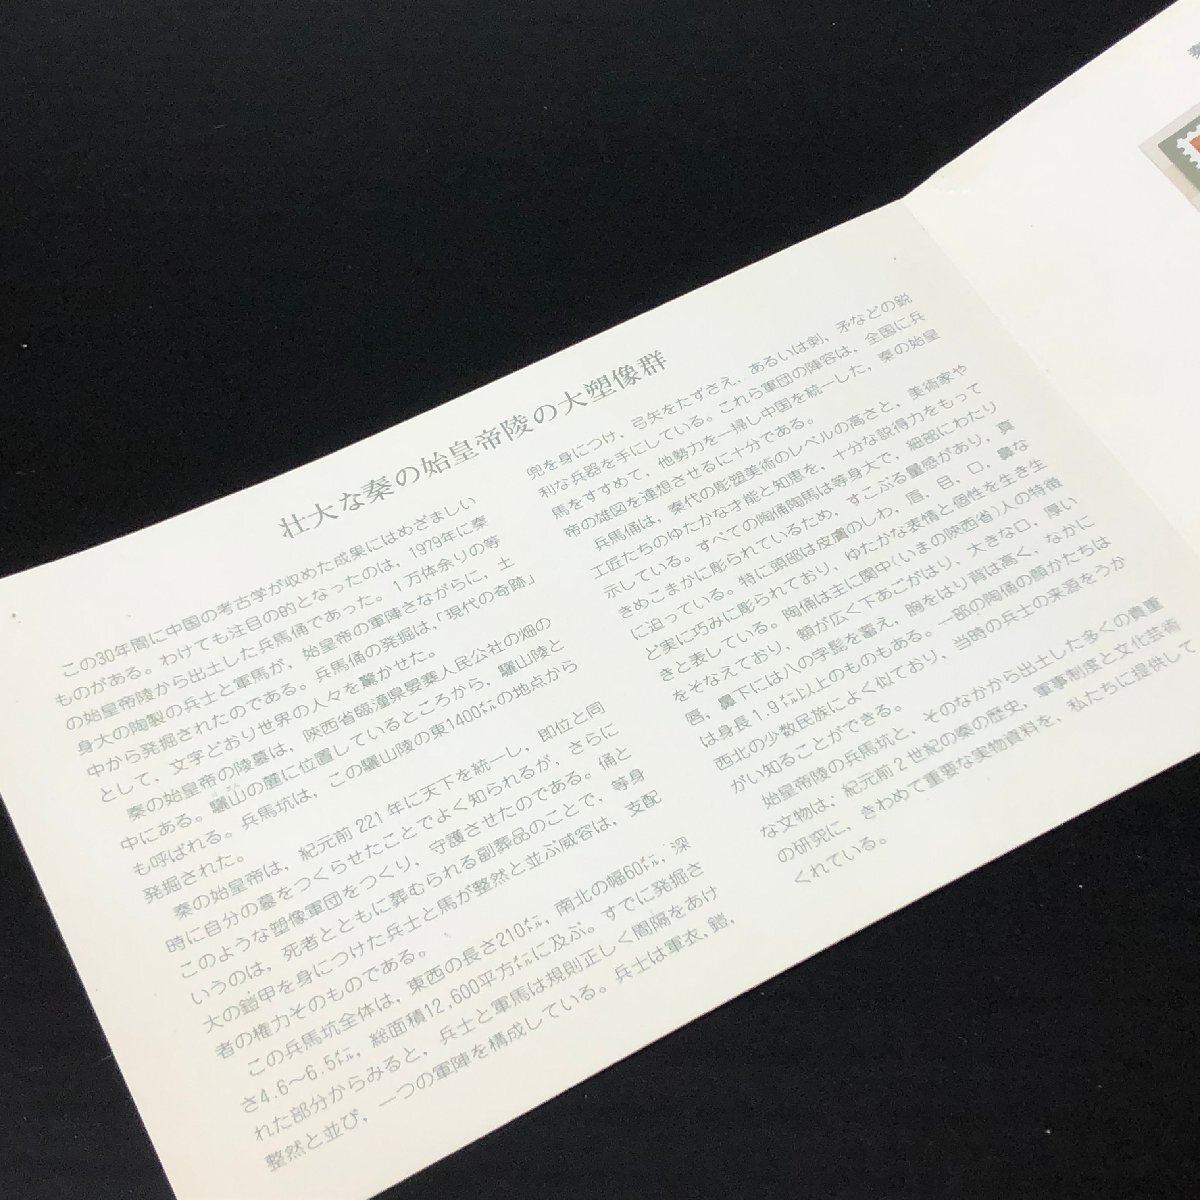 壮大な秦の始皇帝陵の大塑像群
この30年間に中国の考古学が収めた成果にはめざましい
ものがある。わけても注目の的となったのは，1979年に秦
の始皇帝陵から出土した兵馬俑であった。1万体余りの等
身大の陶製の兵士と軍馬が，始皇帝の軍陣さながらに，土
中から発掘されたのである。兵馬俑の発掘は，「現代の奇跡」
として，文字どおり世界の人々を驚かせた。
秦の始皇帝の陵墓は，陝西省臨潼県晏寨人民公社の畑の
中にある。驪山の麓に位置しているところから，驪山陵と
も呼ばれる。兵馬坑は，この驪山陵の東1400㍍の地点から
発掘された。
秦の始皇帝は，紀元前221年に天下を統一し，即位と同
時に自分の墓をつくらせたことでよく知られるが，さらに
このような塑像軍団をつくり，守護させたのである。俑と
いうのは，死者とともに葬むられる副葬品のことで，等身
大の鎧甲を身につけた兵士と馬が整然と並ぶ威容は，支配
者の権力そのものである。
この兵馬坑全体は，東西の長さ210㍍，南北の幅60㍍，深
さ4.6〜6.5㍍，総面積12,600平方㍍に及ぶ。すでに発掘さ
れた部分からみると，兵士と軍馬は規則正しく間隔をあけ
整然と並び，一つの軍陣を構成している。兵士は軍衣，鎧，
兜を身につけ，弓矢をたずさえ，あるいは剣，矛などの鋭
利な兵器を手にしている。これら軍団の陣容は，全国に兵
馬をすすめて，他勢力を一掃し中国を統一した，秦の始皇
帝の雄図を連想させるに十分である。
兵馬俑は，秦代の彫塑美術のレベルの高さと，美術家や
工匠たちのゆたかな才能と知恵を，十分な説得力をもって
示している。すべての陶俑陶馬は等身大で，細部にわたり
きめこまかに彫られているため，すこぶる量感があり，真
に迫っている。特に頭部は皮膚のしわ，眉，目，口，鼻な
ど実に巧みに彫られており，ゆたかな表情と個性を生き生
きと表している。陶俑は主に関中(いまの陝西省)人の特徴
をそなえており，額が広く下あごがはり，大きな口，厚い
唇，鼻下には八の字髭を蓄え，胸をはり背は高く，なかに
は身長1.9㍍以上のものもある。一部の陶俑の顔かたちは
西北の少数民族によく似ており，当時の兵士の来源をうか
がい知ることができる。
始皇帝陵の兵馬坑と，そのなかから出土した多くの貴重
な文物は，紀元前2世紀の秦の歴史，軍事制度と文化芸術
の研究に，きわめて重要な実物資料を，私たちに提供して
くれている。